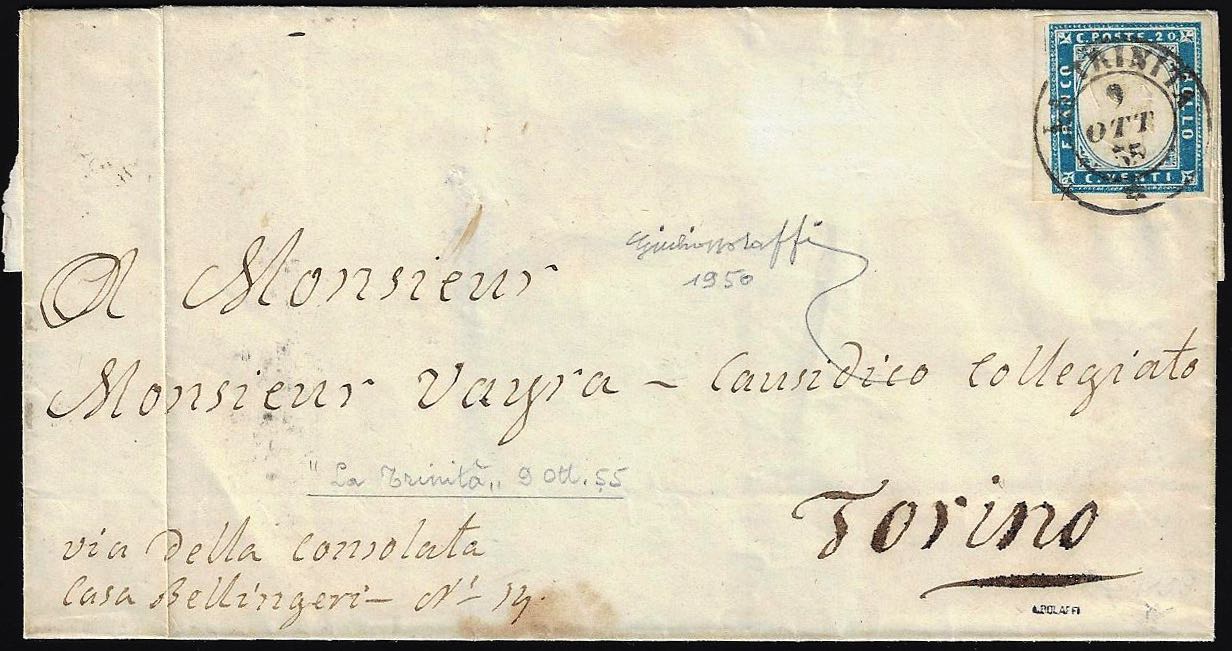 C. POSTE. 20
FRANCO
BOLLO
C. VENTI
LA TRINITA
9
OTT
55
A Monsieur
Giulio Bolaffi
1950
Monsieur Vayra - Causidico Collegiato
"La Trinità" 9 Ott. 55
Torino
via della Consolata
Casa Bellingeri -
A. BOLAFFI